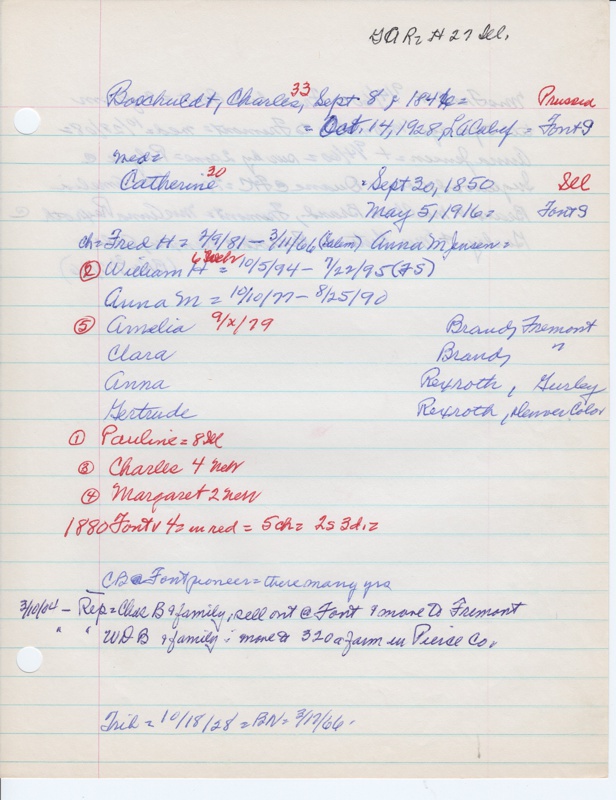 GAR = # 27 Ill.
Boschuldt, Charles, 33 Sept 8, 184 = Prussia
= Oct. 14, 1928, = Font 9
med =
Catherine 30 = Sept 30, 1850 Ill
May 5, 1916 = Font 9
ch = Fred H = 7/9/81 – 3/11/66 (Salem) Anna M Jensen =
② William H 6 Nebr = 10/5/94 – 7/22/95 (FS)
Anna M = 10/10/77 – 8/25/90
⑤ Amelia 9/x/79 Brandy Fremont
Clara Brandy "
Anna Rexroth, Gurley
Gertrude Rexroth, Denver Color
① Pauline = 8 Ill
③ Charles 4 Nebr
④ Margaret 2 Nebr
1880 Font V 4 = in red = 5 ch = 2s 3d =
CB = Font pioneer = there many yrs
3/10/04 – Rep = Chas B & family, sell out @ Font & move to Fremont
" " W D B & family: move to 320 a farm in Pierce Co.
Trib = 10/18/28 = BN = 3/17/66.